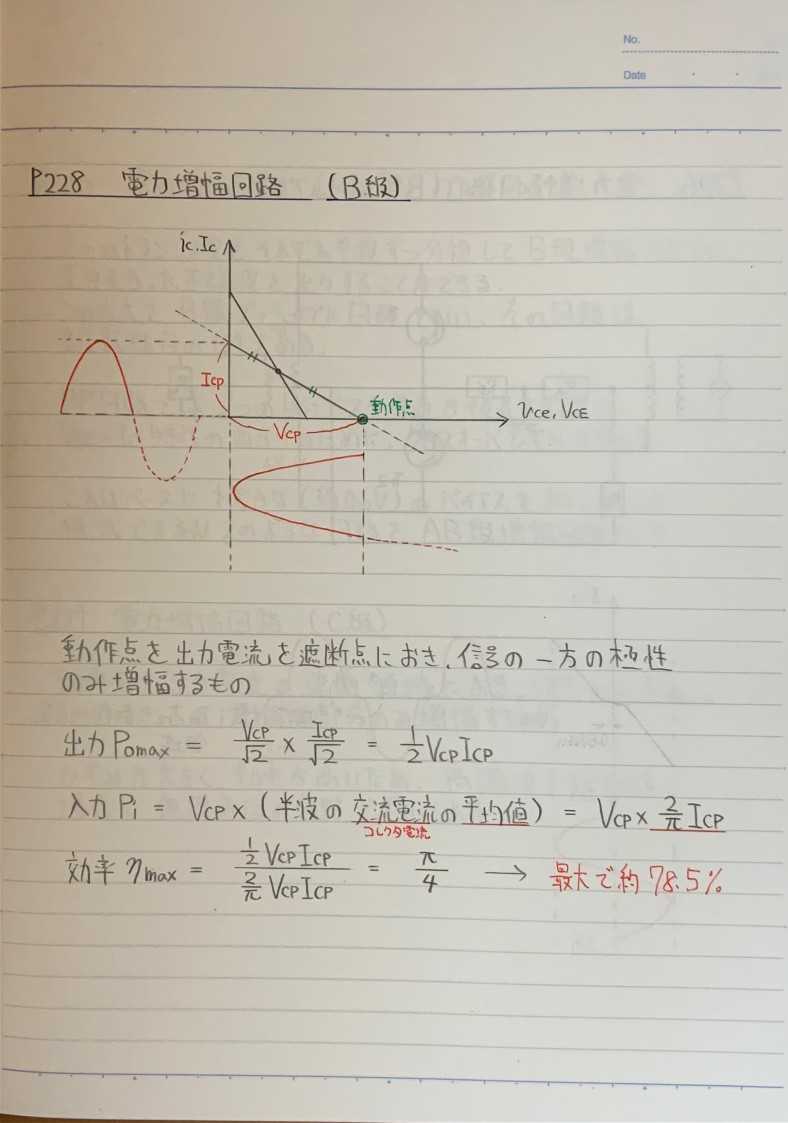 No.
Date
P228 電力増幅回路 (B級)
ic.Ic
Icp
動作点
VCE, VCE
Vcp
動作点を出力電流を遮断点におき、信号の一方の極性
のみ増幅するもの
出力 Pomax = Vcp/√2 × Icp/√2 = 1/2 Vcp Icp
入力 Pi = Vcp × (半波の交流電流の平均値) = Vcp × 2/π Icp
コレクタ電流
効率 ηmax = 1/2 Vcp Icp / 2/π Vcp Icp = π/4 → 最大で約78.5%